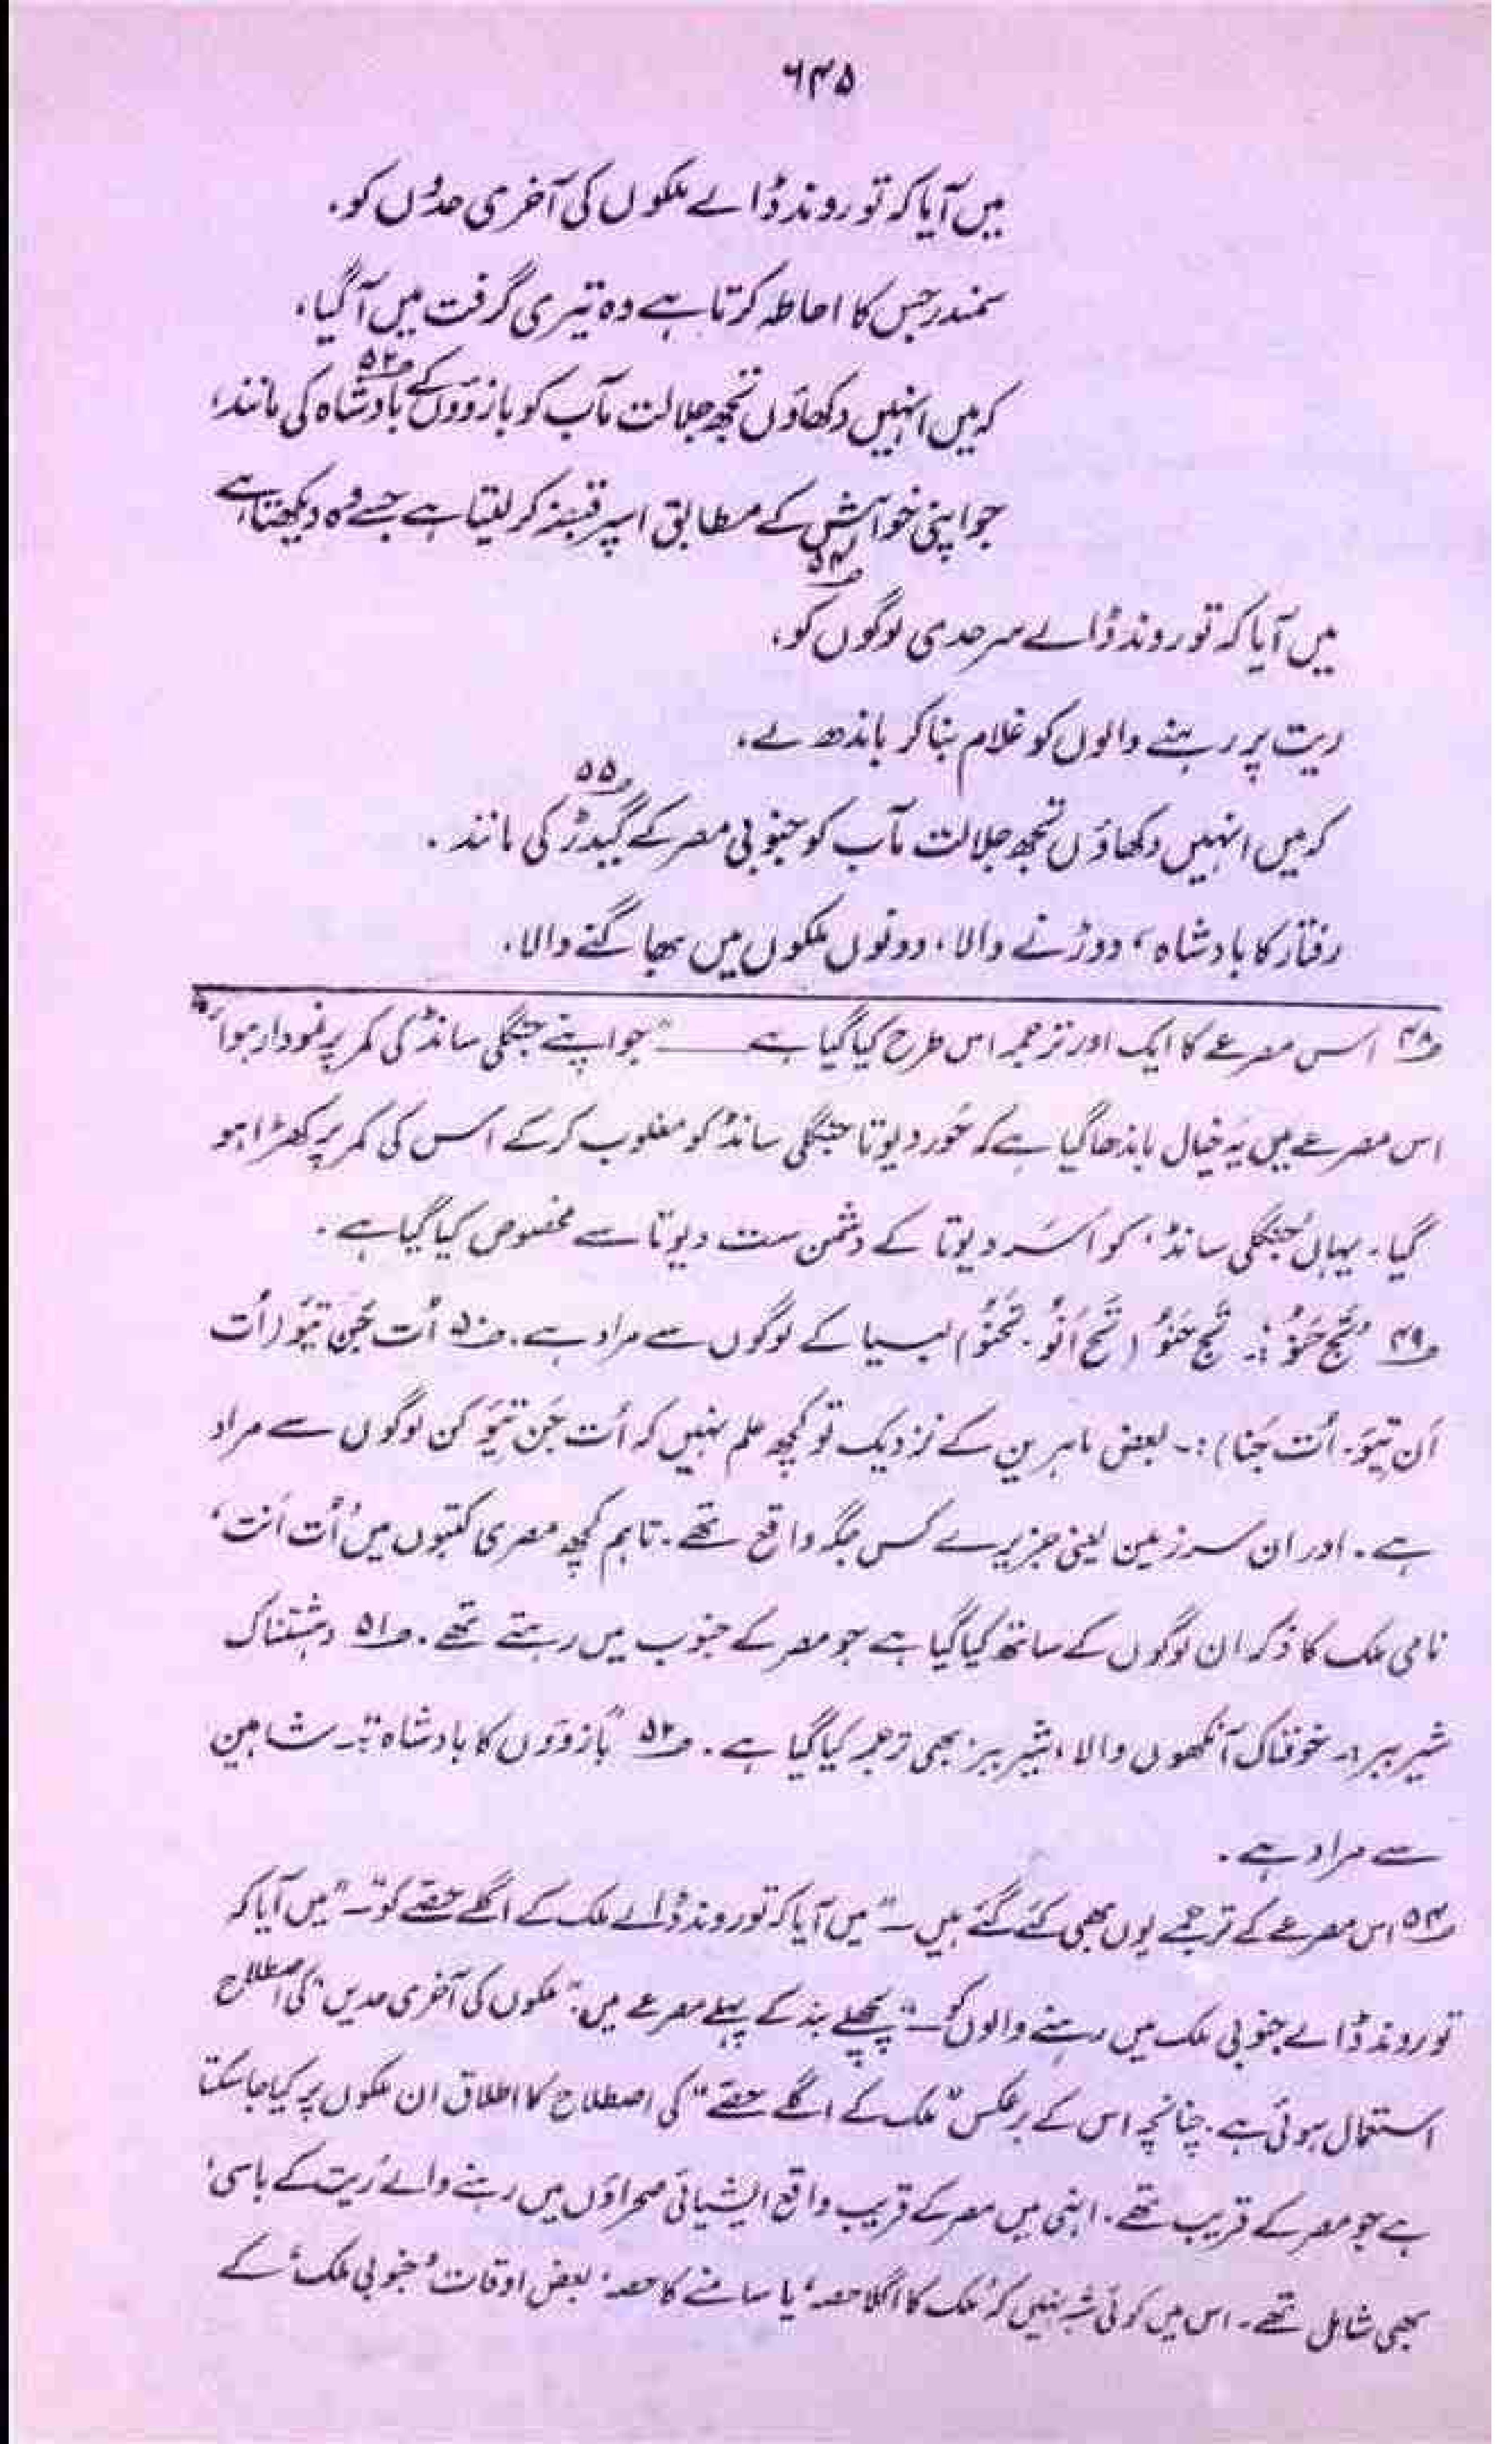 ۶۴۵
میں آیا کہ تو روند ڈالے ملکوں کی آخری حدوں کو،
سمندر جس کا احاطہ کرتا ہے وہ تیری گرفت میں آ گیا،
کہ میں انہیں دکھاؤں تجھ جلالت مآب کو بازوؤں کے بادشاہ کی مانند، ۵۲
جو اپنی خواہش کے مطابق اسپر قبضہ کر لیتا ہے جسے وہ دیکھتا ہے
میں آیا کہ تو روند ڈالے سرحدی لوگوں کو، ۵۴
ریت پر رہنے والوں کو غلام بنا کر باندھ لے،
کہ میں انہیں دکھاؤں تجھ جلالت مآب کو جنوبی مصر کے گیدڑ کی مانند۔ ۵۵
رفتار کا بادشاہ، دوڑنے والا، دونوں ملکوں میں بھاگنے والا،
۴۸ اس مصرعے کا ایک اور ترجمہ اس طرح کیا گیا ہے ـــــ "جو اپنے جنگلی سانڈ کی کمر پر نمودار ہوا"
اس مصرعے میں یہ خیال باندھا گیا ہے کہ حُور دیوتا جنگلی سانڈ کو مغلوب کر کے اس کی کمر پر کھڑا ہو
گیا۔ یہاں 'جنگلی سانڈ' کو اُسَر دیوتا کے دشمن ست دیوتا سے مخصوص کیا گیا ہے۔
۴۹ "تَحِ حَنُو":۔ تَحِ حَنُو (تَحِ اَنُو۔ تَحَنُو) لیبیا کے لوگوں سے مراد ہے۔ ۵۰ اُت جَن تیَو (اُت
اَن تیَو۔ اُت جَنا):۔ بعض ماہرین کے نزدیک تو کچھ علم نہیں کہ اُت جَن تیَو کن لوگوں سے مراد
ہے۔ اور ان سرزمین یعنی جزیرے کس جگہ واقع تھے۔ تاہم کچھ مصری کتبوں میں 'اُت اَنت'
نامی ملک کا ذکر ان لوگوں کے ساتھ کیا گیا ہے جو مصر کے جنوب میں رہتے تھے۔ ۵۱ دہشتناک
شیر ببر:۔ خوفناک آنکھوں والا 'شیر ببر' بھی ترجمہ کیا گیا ہے۔ ۵۲ "بازوؤں کا بادشاہ":۔ شاہین
سے مراد ہے۔
۵۴ اس مصرعے کے ترجمے یوں بھی کئے گئے ہیں ـ "میں آیا کہ تو روند ڈالے ملک کے اگلے حصے کو" ـ "میں آیا کہ
تو روند ڈالے جنوبی ملک میں رہنے والوں کو" ـ پچھلے بند کے پہلے مصرعے میں "ملکوں کی آخری حدیں" کی اصطلاح
استعمال ہوئی ہے۔ چنانچہ اس کے برعکس "ملک کے اگلے حصے" کی اصطلاح کا اطلاق ان ملکوں پر کیا جا سکتا
ہے جو مصر کے قریب تھے۔ انہی میں مصر کے قریب واقع ایشیائی صحراؤں میں رہنے والے 'ریت کے باسی'
بھی شامل تھے۔ اس میں کوئی شبہ نہیں کہ 'ملک کا اگلا حصہ' یا سامنے کا حصہ' بعض اوقات 'جنوبی ملک' کے